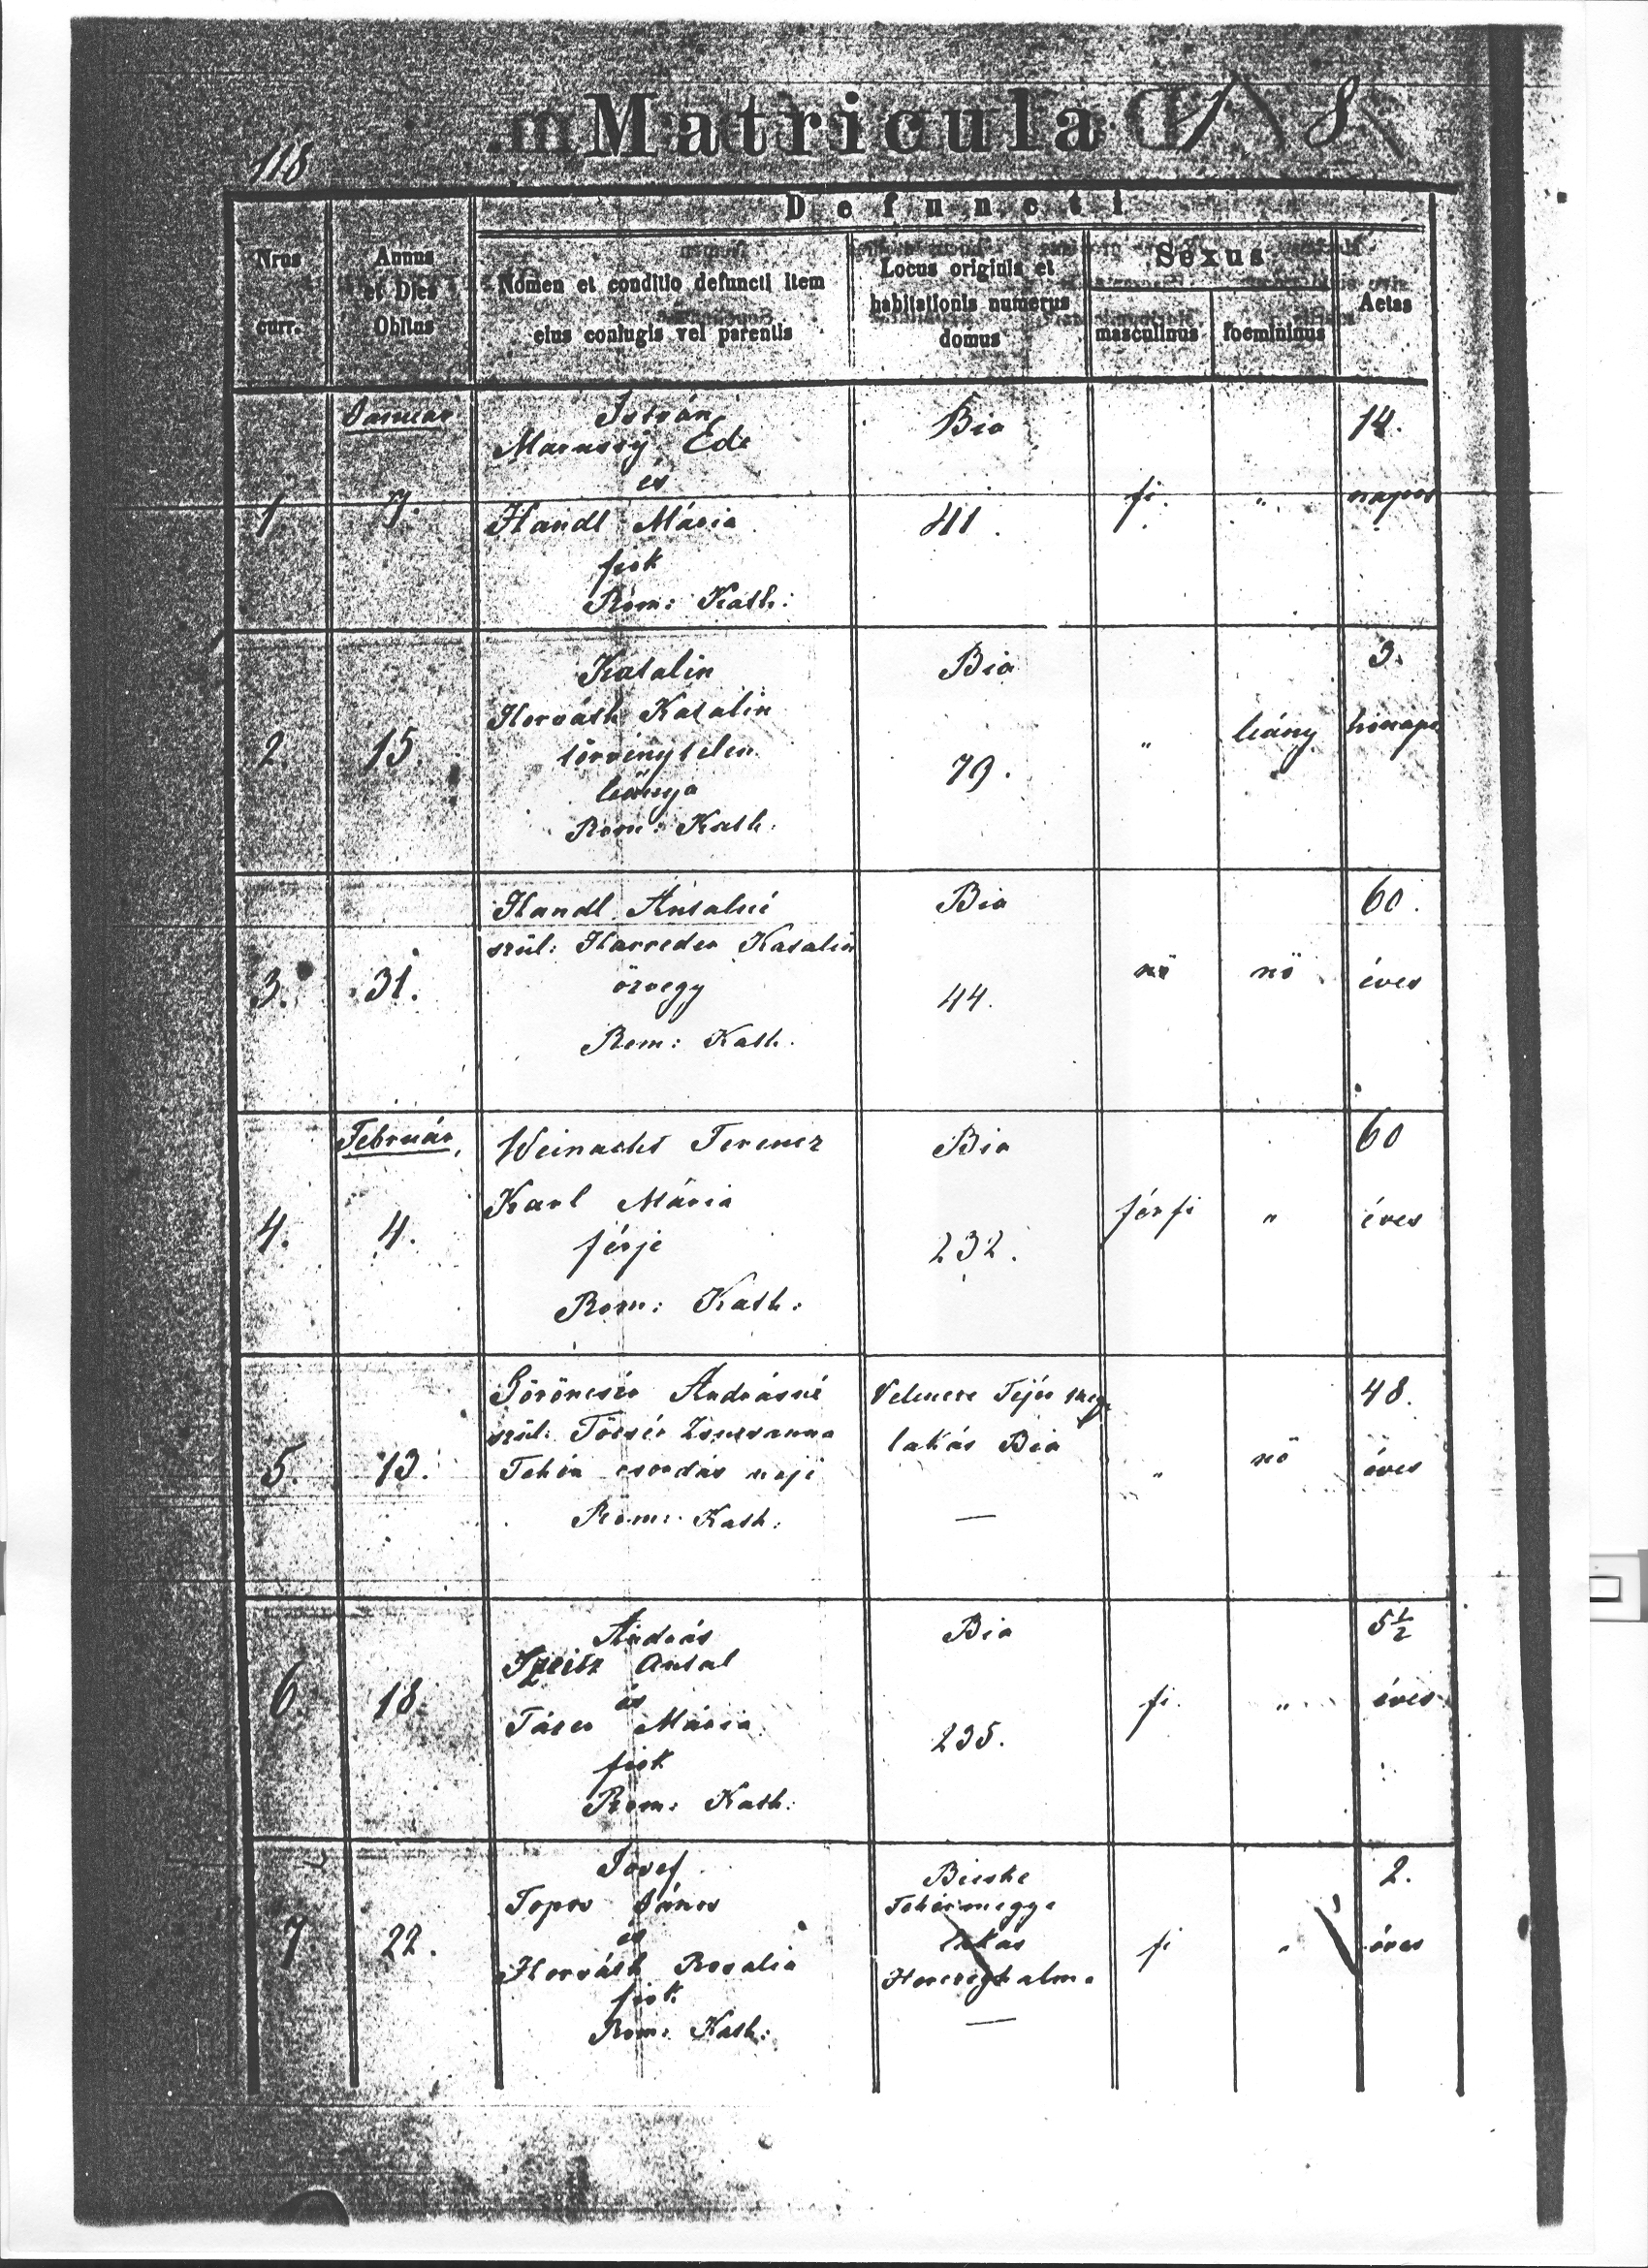 Matricula
118
Defuncti
Nrus curr.
Annus et Dies Obitus
Nomen et conditio defuncti item eius coniugis vel parentis
Locus originis et habitationis numerus domus
Sexus
masculinus
foemininus
Aetas
Januar
István
Bia
14.
Marassy Ede
és
1.
7.
fi.
„
napos
Handl Mária
41.
fiok
Rom: Kath:
Katalin
Bia
3.
Horváth Katalin
2.
15.
törvénytelen
79.
„
leány
hónapo
leánya
Rom: Kath.
Handl Antalné
Bia
60.
szül: Harreder Katalin
3.
31.
özvegy
44.
nö
nö
éves
Rom: Kath.
Február
Weinacht Ferencz
Bia
60
Karl Mária
4.
4.
férje
232.
férfi
„
éves
Rom: Kath:
Andrásné
Velencze Fejér meg.
48.
szül: Zsuzsanna
lakás Bia
5.
13.
Fehér csordás neji
„
nö
éves
Rom: Kath:
—
András
Bia
5½
Antal
6.
18.
és
fi.
„
éves
Mária
235.
fiok
Rom: Kath:
Josef
Bicske
2.
János
Fehérmegye
7
22.
és
lakás
fi
„
éves
Horváth Rosalia
Herczeghalma
fiok
Rom: Kath:
—